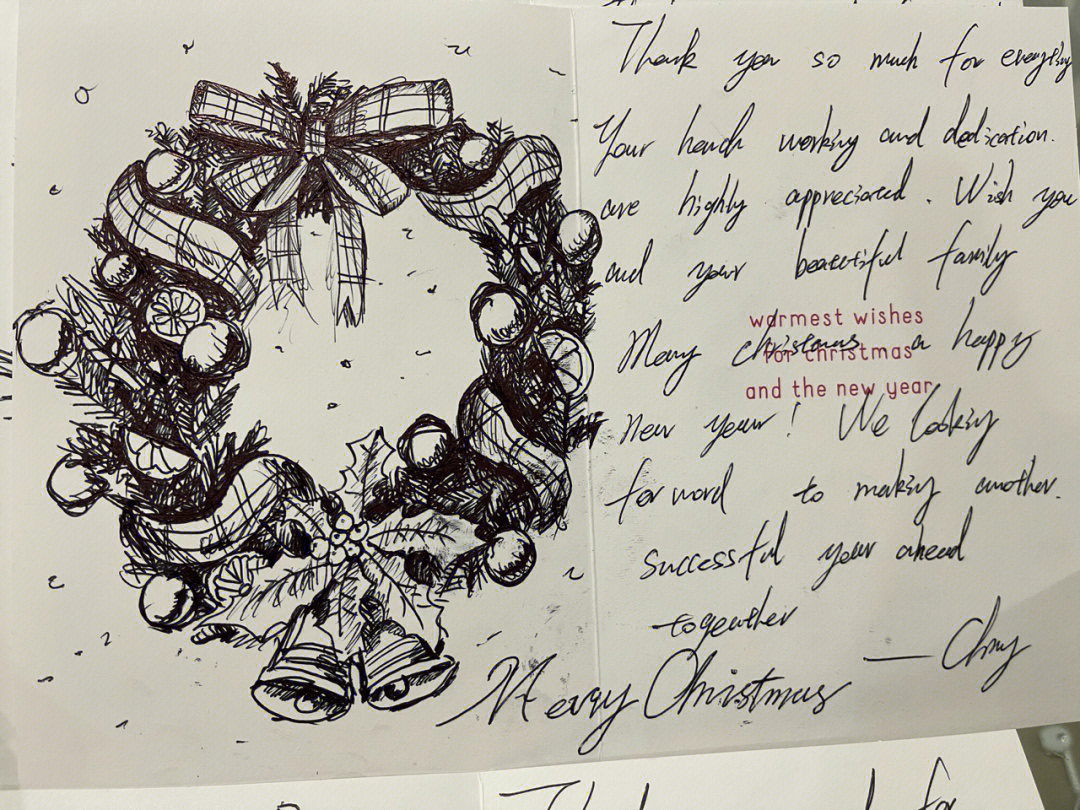 Thank you so much for everything
Your hardh working and dedication.
are highly appreciared. Wish you
and your beautiful family
warmest wishes
for christmas
and the new year
Merry christmas a happy
new year! We looking
forword to making another.
successful year ahead
together
— Chry
Merry Christmas